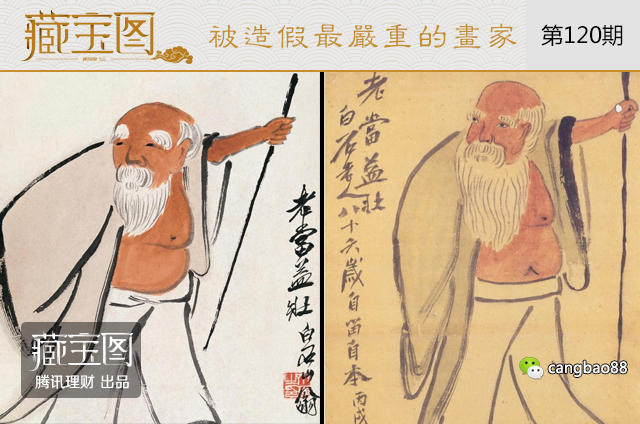 藏宝图
被造假最嚴重的畫家
第120期
老當益壯 白石山翁
老當益壯
白石老人八十六歲自留自本 丙戌
藏宝图
腾讯理财 出品
cangbao88